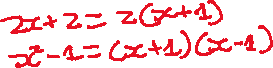 2x+2=2(x+1)
x²-1=(x+1)(x-1)